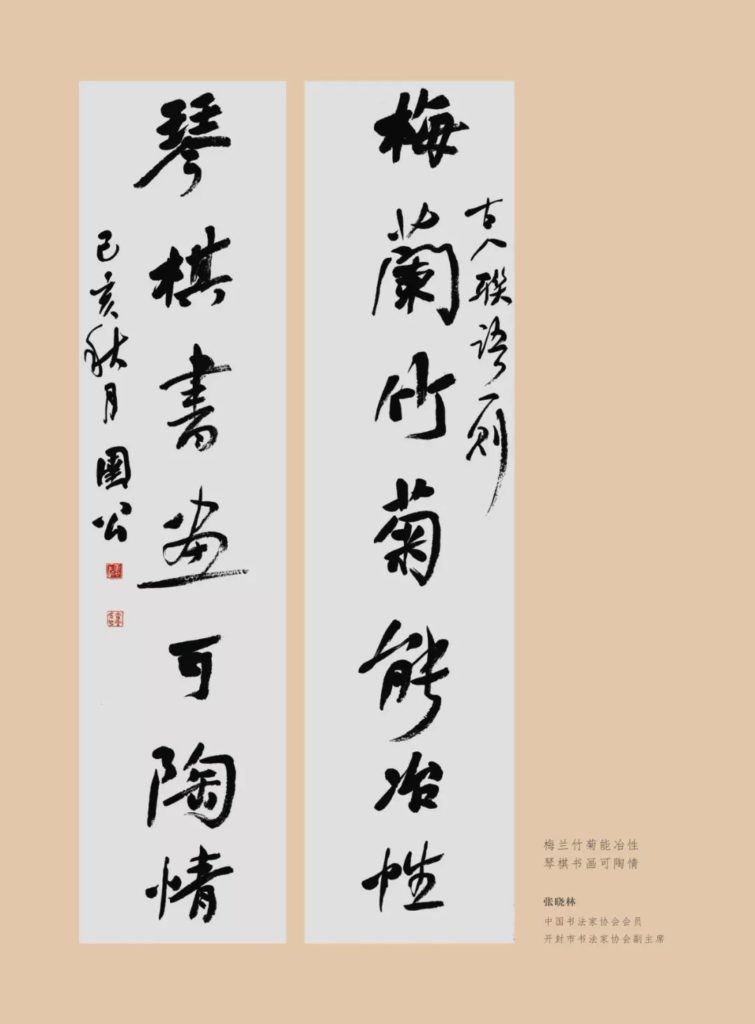 梅蘭竹菊能冶性
古人联语一则
琴棋書畫可陶情
己亥秋月圉公
梅兰竹菊能冶性
琴棋书画可陶情
张晓林
中国书法家协会会员
开封市书法家协会副主席